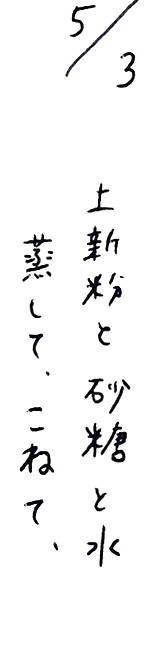 5/3
土新粉と砂糖と水
蒸して、こねて、